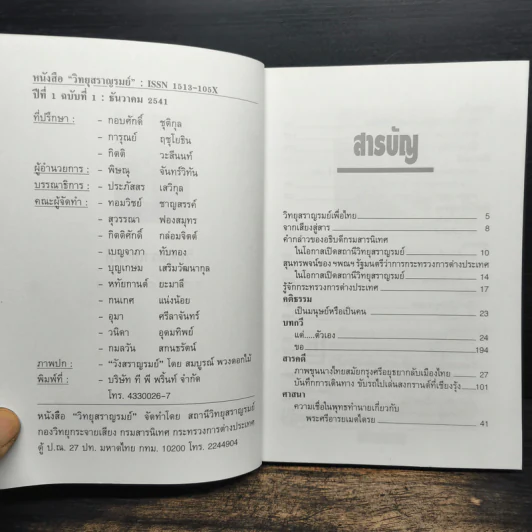 หนังสือ "วิทยุสราญรมย์" : ISSN 1513-105X
ปีที่ 1 ฉบับที่ 1 : ธันวาคม 2541
ที่ปรึกษา : - กอบศักดิ์ ชุติกุล
- การุณย์ ฤชุโยธิน
- กิตติ วะสีนนท์
ผู้อำนวยการ : - พิษณุ จันทร์วิทัน
บรรณาธิการ : - ประภัสสร เสวิกุล
คณะผู้จัดทำ : - ทอมวิชย์ ชาญสรรค์
- สุวรรณา ฟองสมุทร
- กิตติศักดิ์ กล่อมจิตต์
- เบญจาภา ทับทอง
- บุญเกษม เสริมวัฒนากุล
- หทัยกานต์ ยะมาลี
- กนเกศ แน่งน้อย
- อุมา ศรีลาจันทร์
- วนิดา อุดมทิพย์
- กมลวัน สกนธรัตน์
ภาพปก : - "วังสราญรมย์" โดย สมบูรณ์ พวงดอกไม้
พิมพ์ที่ : - บริษัท ที พี พริ้นท์ จำกัด
โทร. 4330026-7
หนังสือ "วิทยุสราญรมย์" จัดทำโดย สถานีวิทยุสราญรมย์
กองวิทยุกระจายเสียง กรมสารนิเทศ กระทรวงการต่างประเทศ
ตู้ ป.ณ. 27 ปท. มหาดไทย กทม. 10200 โทร. 2244904
สารบัญ
วิทยุสราญรมย์เพื่อไทย 5
จากเสียงสู่สาร 8
คำกล่าวของอธิบดีกรมสารนิเทศ
ในโอกาสเปิดสถานีวิทยุสราญรมย์ 10
สุนทรพจน์ของ ฯพณฯ รัฐมนตรีว่าการกระทรวงการต่างประเทศ
ในโอกาสเปิดสถานีวิทยุสราญรมย์ 14
รู้จักกระทรวงการต่างประเทศ 17
คติธรรม
เป็นมนุษย์หรือเป็นคน 23
บทกวี
แด่.....ตัวเอง 24
ขอ 194
สารคดี
ภาพขุนนางไทยสมัยกรุงศรีอยุธยากลับเมืองไทย 27
บันทึกการเดินทาง ขับรถไปเล่นสงกรานต์ที่เชียงรุ้ง 101
ศาสนา
ความเชื่อในพุทธทำนายเกี่ยวกับ
พระศรีอารยเมตไตรย 41